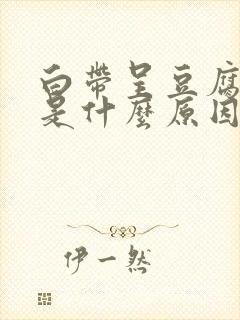 白帶呈豆腐
是什麼原因
伊一然